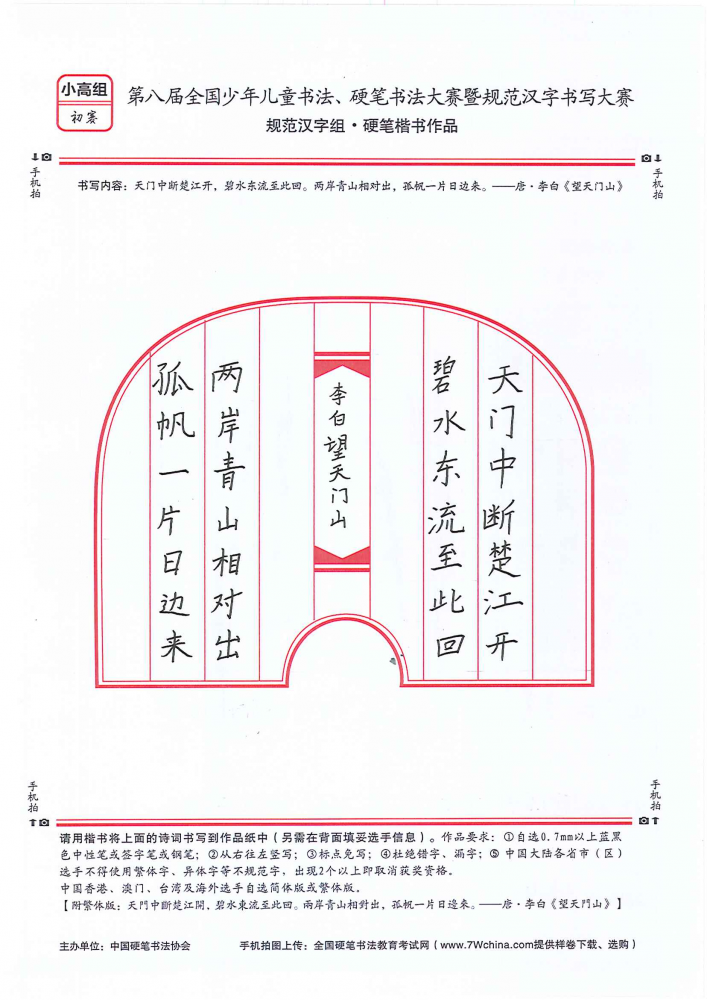 小高组
初赛
第八届全国少年儿童书法、硬笔书法大赛暨规范汉字书写大赛
规范汉字组·硬笔楷书作品
手机拍
手机拍
书写内容：天门中断楚江开，碧水东流至此回。两岸青山相对出，孤帆一片日边来。——唐·李白《望天门山》
天门中断楚江开
碧水东流至此回
李白望天门山
两岸青山相对出
孤帆一片日边来
手机拍
手机拍
请用楷书将上面的诗词书写到作品纸中（另需在背面填妥选手信息）。作品要求：①自选0.7mm以上蓝黑
色中性笔或签字笔或钢笔；②从右往左竖写；③标点免写；④杜绝错字、漏字；⑤ 中国大陆各省市（区）
选手不得使用繁体字、异体字等不规范字，出现2个以上即取消获奖资格。
中国香港、澳门、台湾及海外选手自选简体版或繁体版。
【附繁体版：天門中斷楚江開，碧水東流至此回。兩岸青山相對出，孤帆一片日邊來。——唐·李白《望天門山》】
主办单位：中国硬笔书法协会
手机拍图上传：全国硬笔书法教育考试网（www.7Wchina.com提供样卷下载、选购）